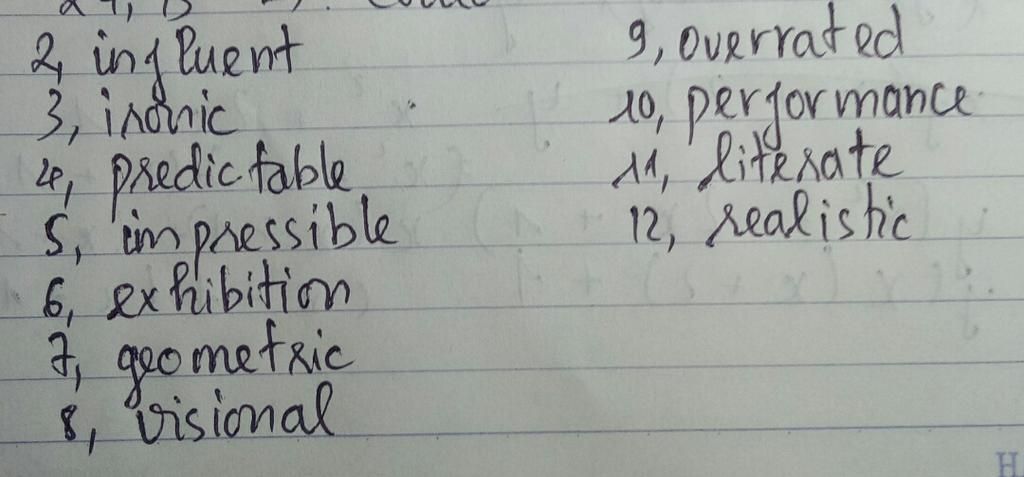 2, influent
3, ironic
4, predictable
5, impressible
6, exhibition
7, geometric
8, visional
9, overrated
10, performance
11, literate
12, realistic
H